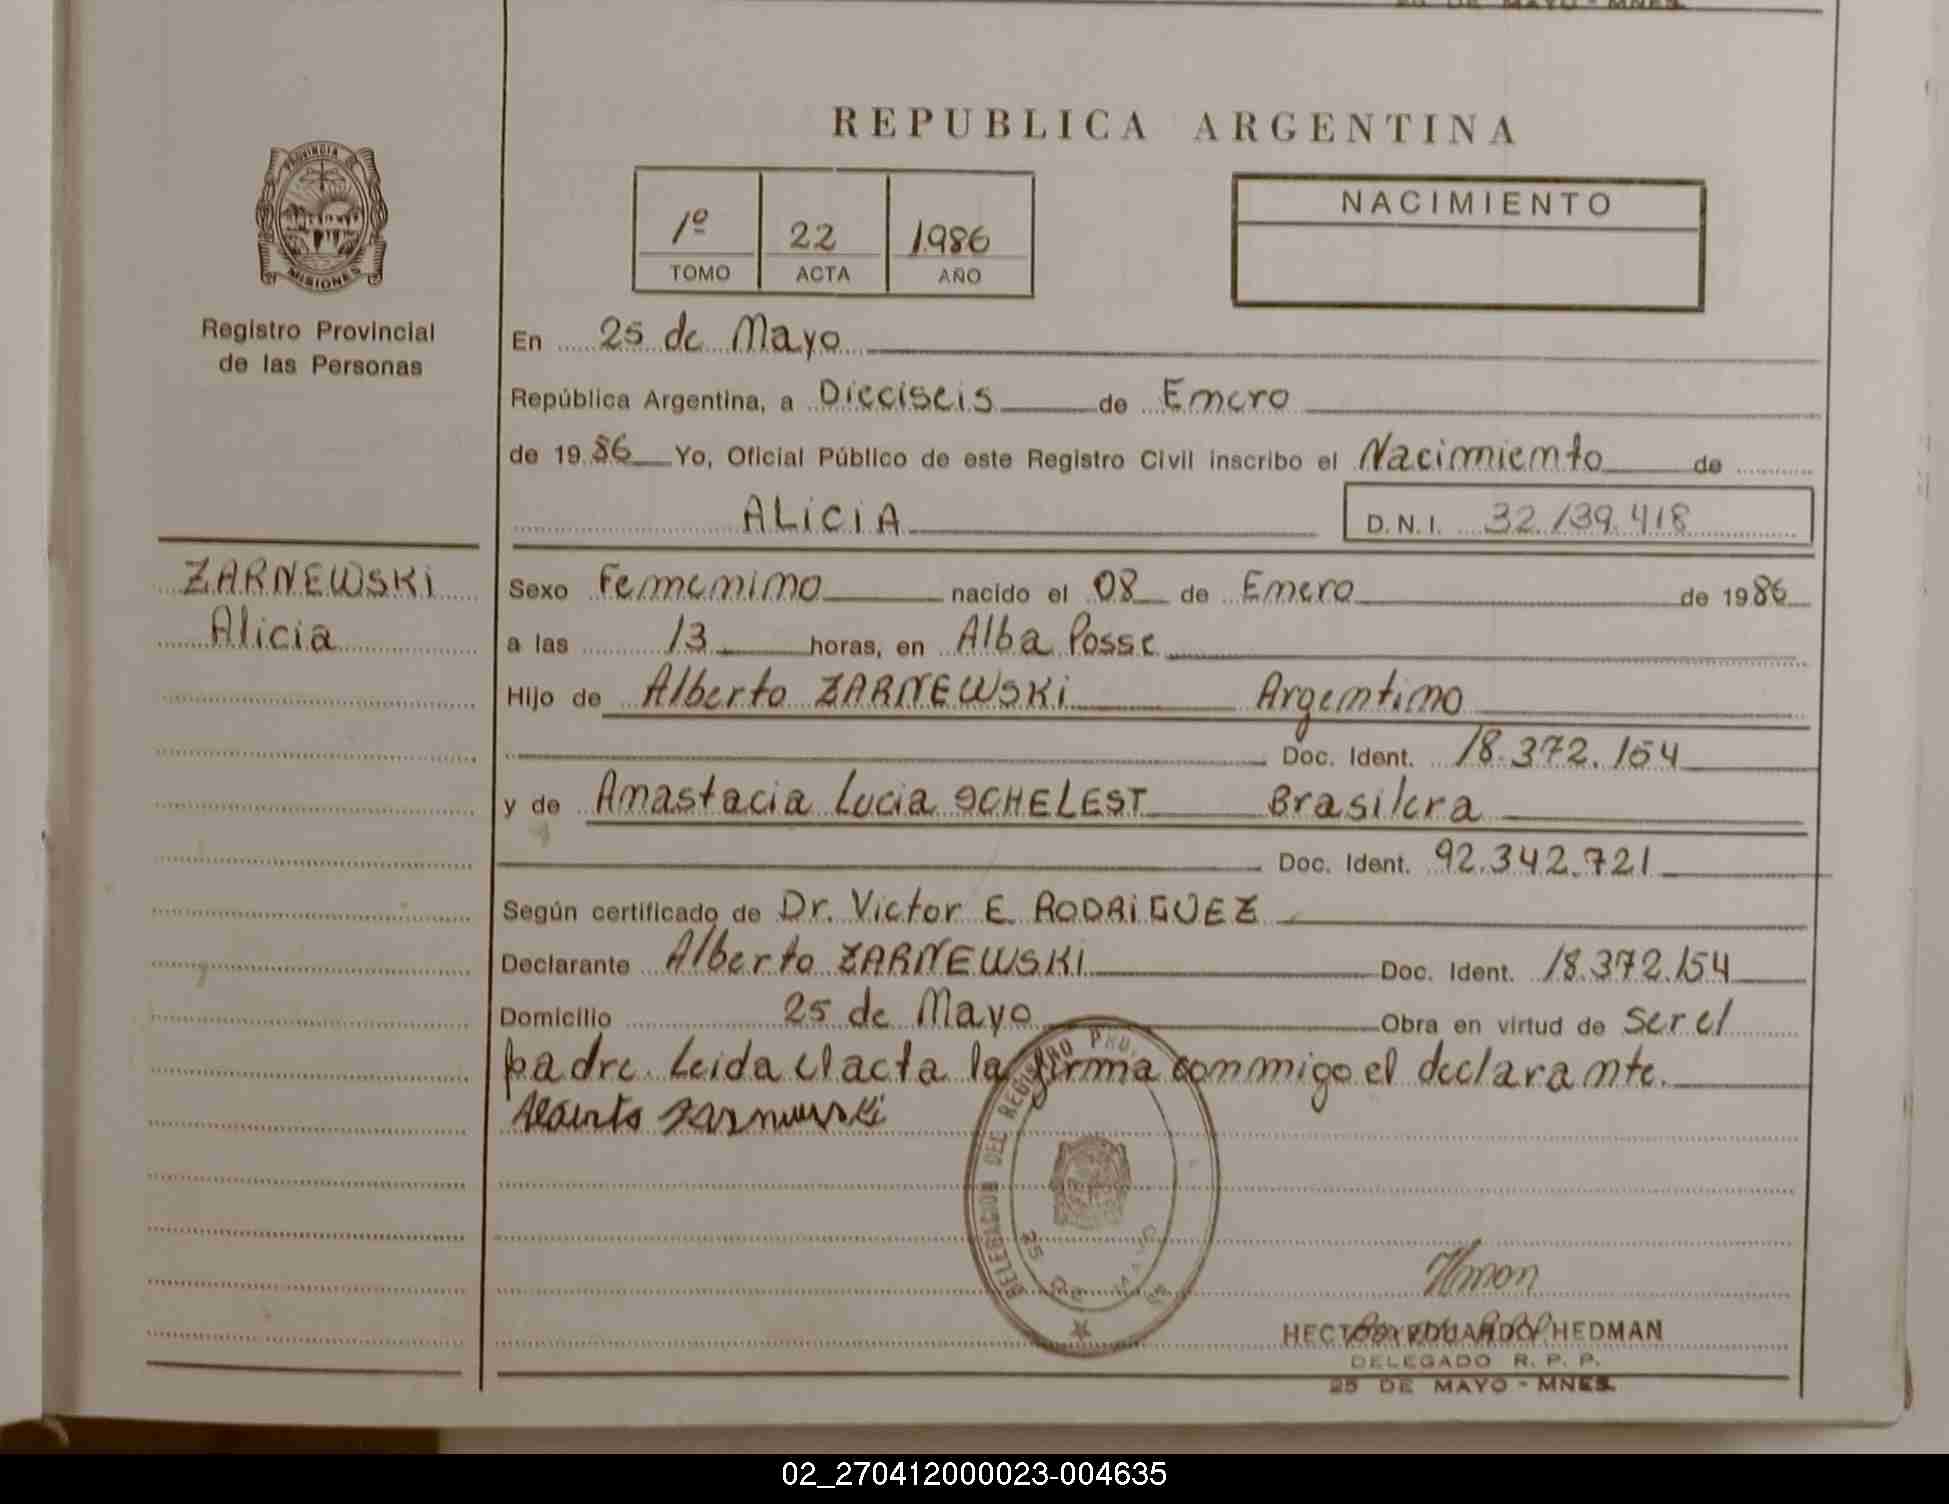 25 DE MAYO - MNES.
REPUBLICA ARGENTINA
PROVINCIA DE
MISIONES
Registro Provincial
de las Personas
1º 22 1986
TOMO ACTA AÑO
NACIMIENTO
En 25 de Mayo
República Argentina, a Dieciseis de Enero
de 1986 Yo, Oficial Público de este Registro Civil inscribo el Nacimiento de
ALICIA D.N.I. 32.139.418
ZARNEWSKI
Alicia
Sexo Femenino nacido el 08 de Enero de 1986
a las 13 horas, en Alba Posse
Hijo de Alberto ZARNEWSKI Argentino
Doc. Ident. 18.372.154
y de Anastacia Lucia SCHELEST Brasilera
Doc. Ident. 92.342.721
Según certificado de Dr. Victor E. RODRIGUEZ
Declarante Alberto ZARNEWSKI Doc. Ident. 18.372.154
Domicilio 25 de Mayo Obra en virtud de ser el
padre. Leida el acta la firma conmigo el declarante.
Alberto Zarnewski
DELEGACION DEL REGISTRO PRO.
25 DE MAYO
HECTOR EDUARDO HEDMAN
DELEGADO R. P. P.
25 DE MAYO - MNES.
02_270412000023-004635